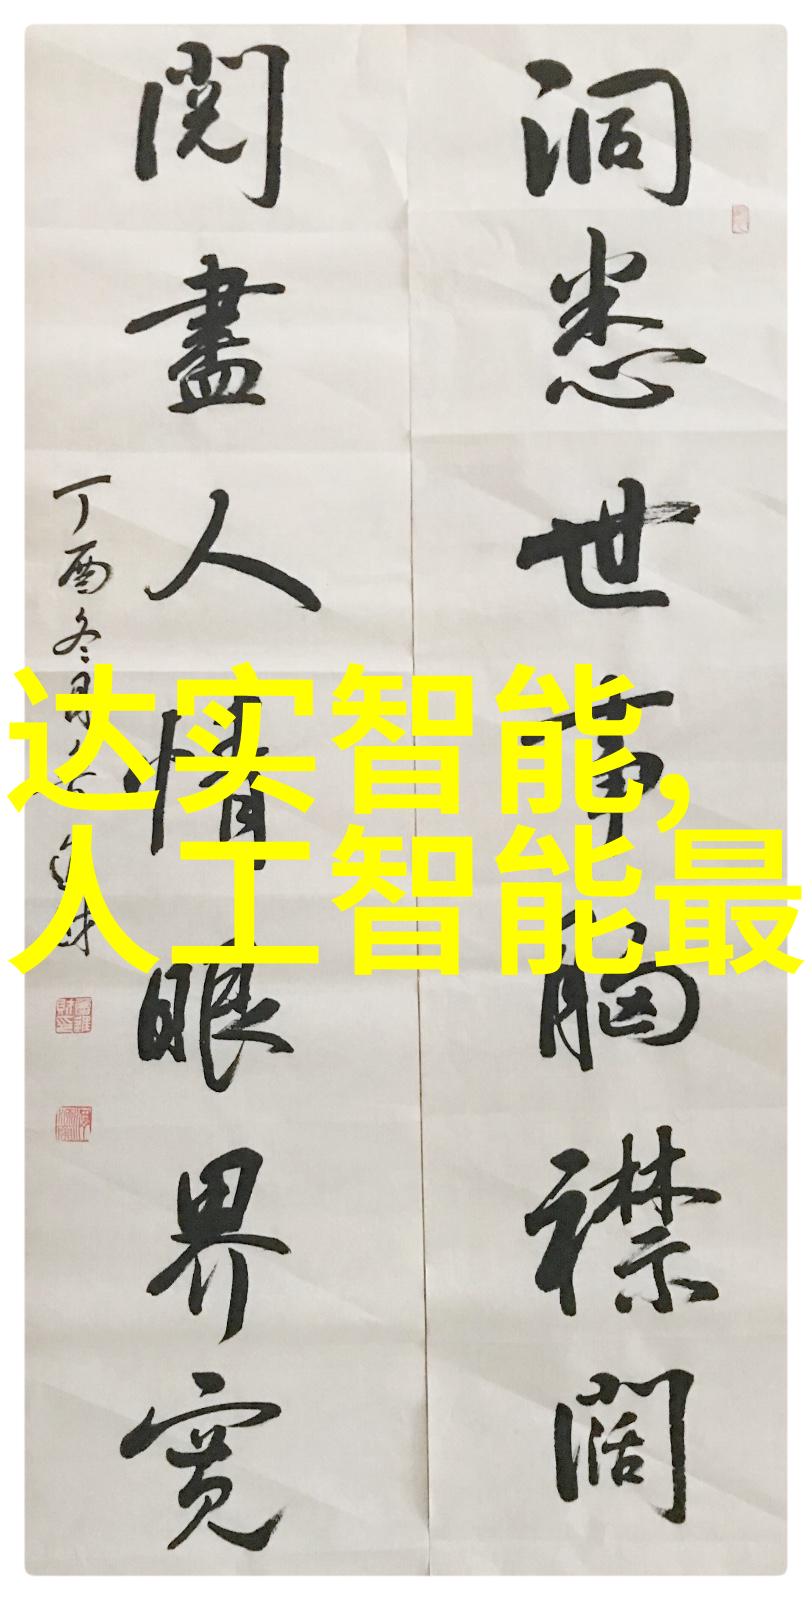 洞悉世事胸襟阔
阅尽人情眼界宽
丁酉冬月
达实智能,
人工智能最